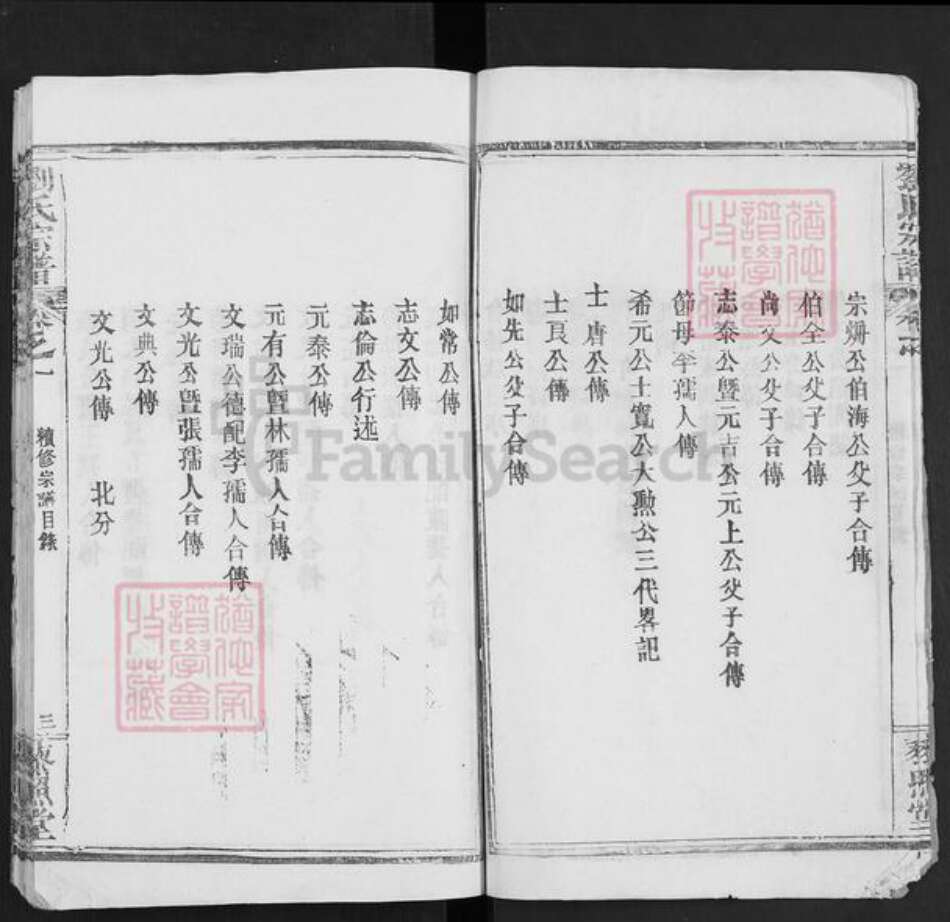 宗㶽公伯海公父子合傳
伯全公父子合傳
尚文公父子合傳
志泰公暨元吉公元上公父子合傳
節母李孺人傳
希元公士寬公大勲公三代畧記
士唐公傳
士良公傳
如先公父子合傳
如常公傳
志文公傳
志倫公行述
元泰公傳
元有公暨林孺人合傳
文瑞公德配李孺人合傳
文光公暨張孺人合傳
文典公傳
文光公傳 北分
劉氏宗譜 卷之一 續修宗譜目錄 三
譜學會 收藏
FamilySearch